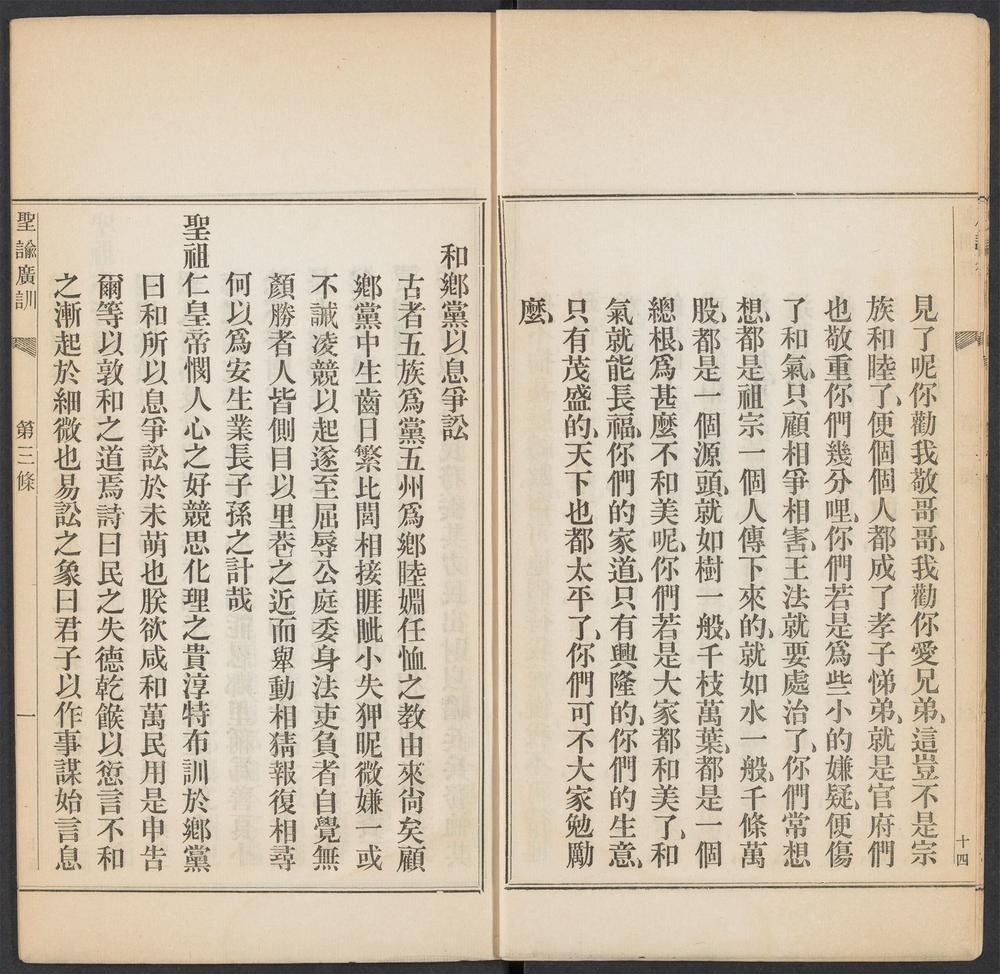 見了呢你勸我敬哥哥、我勸你愛兄弟、這豈不是宗
族和睦了、便個個人都成了孝子悌弟、就是官府們
也敬重你們幾分哩、你們若是爲些小的嫌疑、便傷
了和氣、只顧相爭相害、王法就要處治了、你們常想
想、都是祖宗一個人傳下來的、就如水一般、千條萬
股、都是一個源頭、就如樹一般、千枝萬葉、都是一個
總根、爲甚麼不和美呢、你們若是大家都和美了、和
氣就能長福、你們的家道、只有興隆的、你們的生意、
只有茂盛的、天下也都太平了、你們可不大家勉勵
麼、
十四
和鄉黨以息爭訟
古者五族爲黨五州爲鄉睦婣任恤之教由來尙矣顧
鄉黨中生齒日繁比閭相接睚眦小失狎昵微嫌一或
不誡凌競以起遂至屈辱公庭委身法吏負者自覺無
顏勝者人皆側目以里巷之近而舉動相猜報復相尋
何以爲安生業長子孫之計哉
聖祖仁皇帝憫人心之好競思化理之貴淳特布訓於鄉黨
曰和所以息爭訟於未萌也朕欲咸和萬民用是申告
爾等以敦和之道焉詩曰民之失德乾餱以愆言不和
之漸起於細微也易訟之象曰君子以作事謀始言息
聖諭廣訓 第三條 一